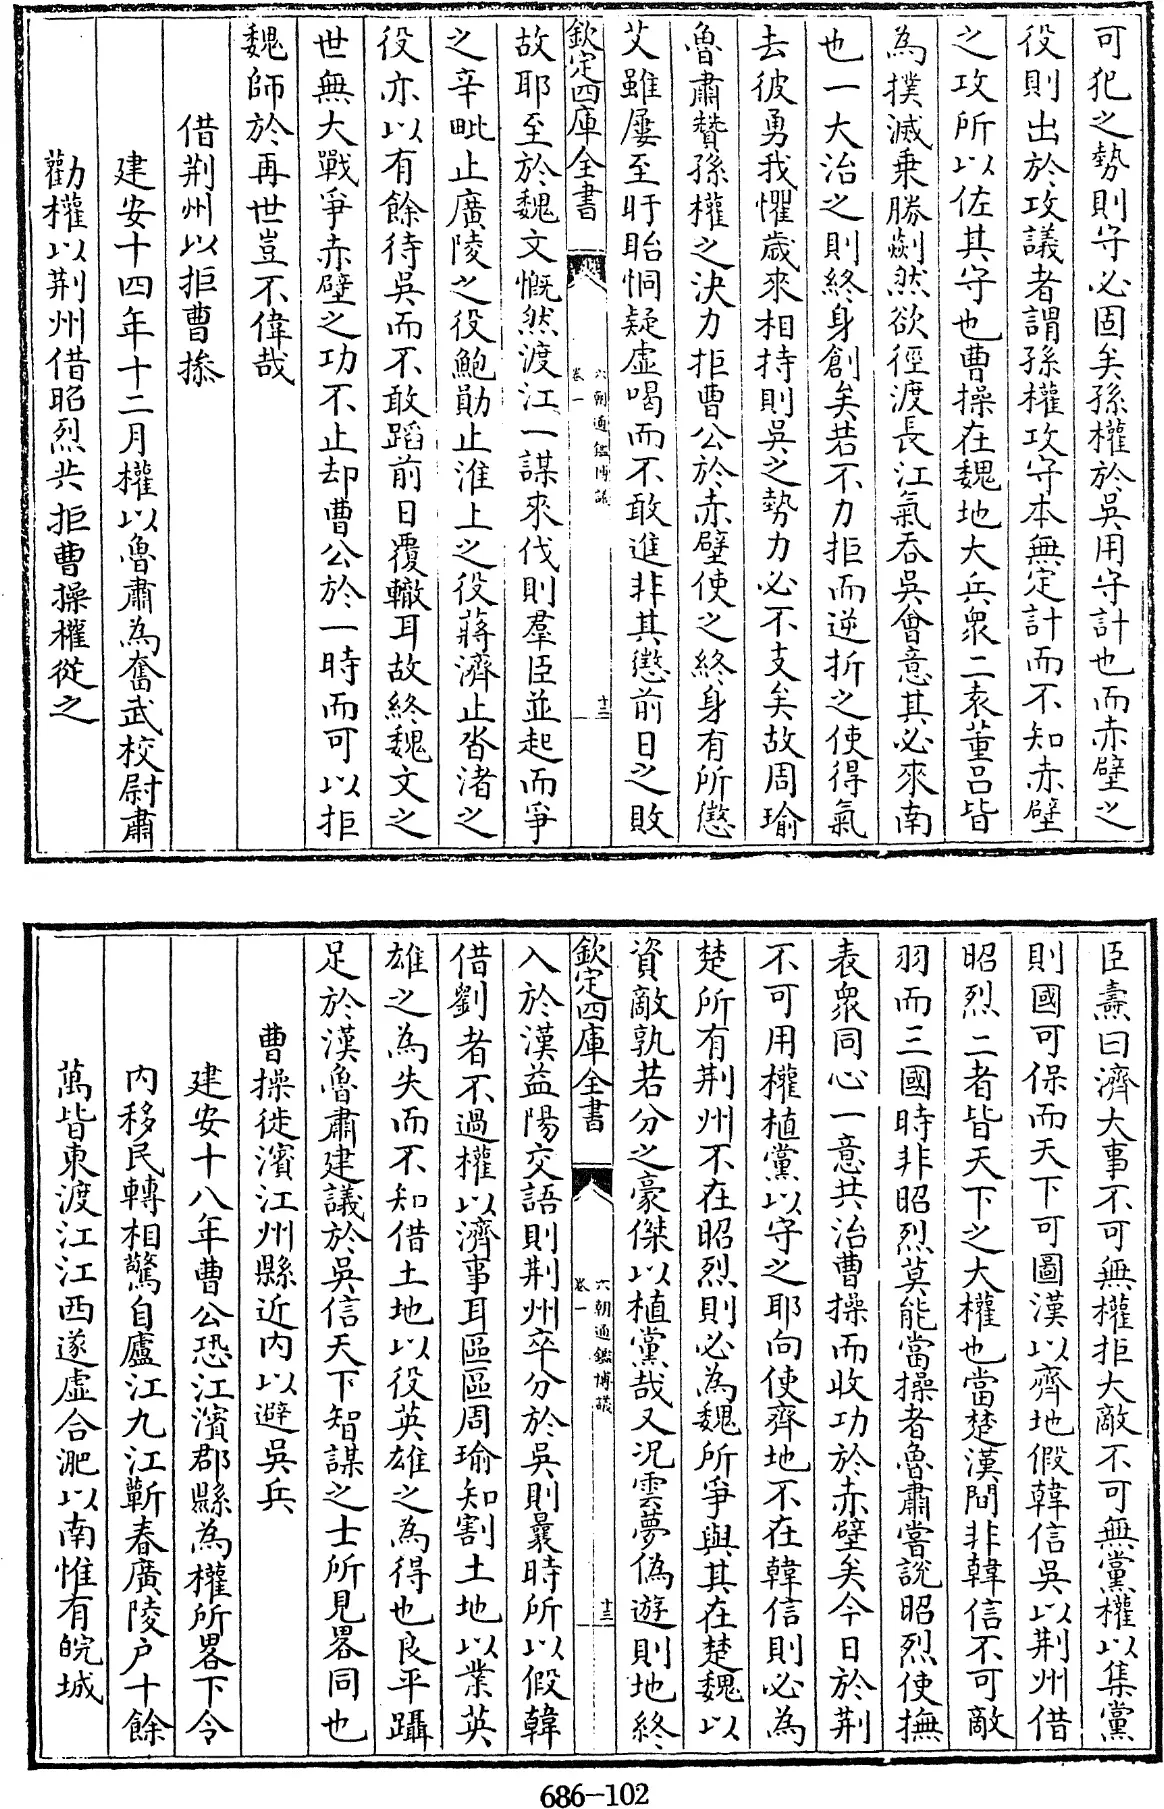 可犯之勢則守必固矣孫權於吳用守計也而赤壁之
役則出於攻議者謂孫權攻守本無定計而不知赤壁
之攻所以佐其守也曹操在魏地大兵衆二袁董呂皆
為撲滅乗勝剡然欲徑渡長江氣吞吳會意其必來南
也一大治之則終身創矣若不力拒而逆折之使得氣
去彼勇我懼歲來相持則吳之勢力必不支矣故周瑜
魯肅贊孫權之決力拒曹公於赤壁使之終身有所懲
艾雖屢至盱眙恫疑虛喝而不敢進非其懲前日之敗
欽定四庫全書
六朝通鑑博議
卷一
十二
故耶至於魏文慨然渡江一謀來伐則羣臣並起而爭
之辛毗止廣陵之役鮑勛止淮上之役蔣濟止沓渚之
役亦以有餘待吳而不敢蹈前日覆轍耳故終魏文之
世無大戰爭赤壁之功不止却曹公於一時而可以拒
魏師於再世豈不偉哉
借荆州以拒曹操
建安十四年十二月權以魯肅為奮武校尉肅
勸權以荆州借昭烈共拒曹操權從之
臣燾曰濟大事不可無權拒大敵不可無黨權以集黨
則國可保而天下可圖漢以齊地假韓信吳以荆州借
昭烈二者皆天下之大權也當楚漢間非韓信不可敵
羽而三國時非昭烈莫能當操者魯肅嘗說昭烈使撫
表衆同心一意共治曹操而收功於赤壁矣今日於荆
不可用權植黨以守之耶向使齊地不在韓信則必為
楚所有荆州不在昭烈則必為魏所爭與其在楚魏以
資敵孰若分之豪傑以植黨哉又况雲夢偽遊則地終
欽定四庫全書
六朝通鑑博議
卷一
十三
入於漢益陽交語則荆州卒分於吳則曩時所以假韓
借劉者不過權以濟事耳區區周瑜知割土地以業英
雄之為失而不知借土地以役英雄之為得也良平躡
足於漢魯肅建議於吳信天下智謀之士所見畧同也
曹操徙濱江州縣近内以避吳兵
建安十八年曹公恐江濱郡縣為權所畧下令
内移民轉相驚自廬江九江蘄春廣陵户十餘
萬皆東渡江江西遂虛合淝以南惟有皖城
686-102